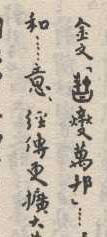 金文、燮萬邦」……
和……意、經傳更擴大